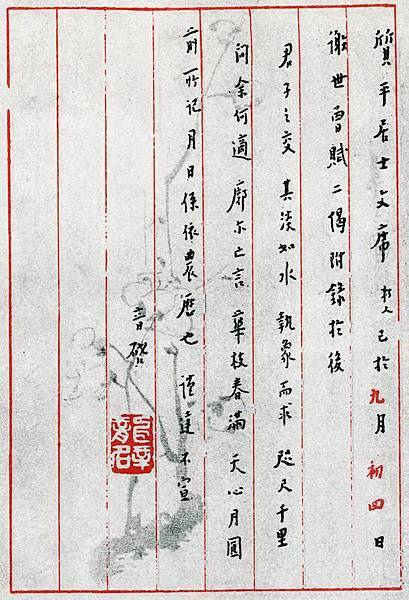 質平居士文席 朽人已於九月初四日
謝世曾賦二偈附錄於後
君子之交 其淡如水 執象而求 咫尺千里
問余何適 廓尒亡言 華枝春滿 天心月圓
前所記月日係依農曆也 謹達不宣
音啟